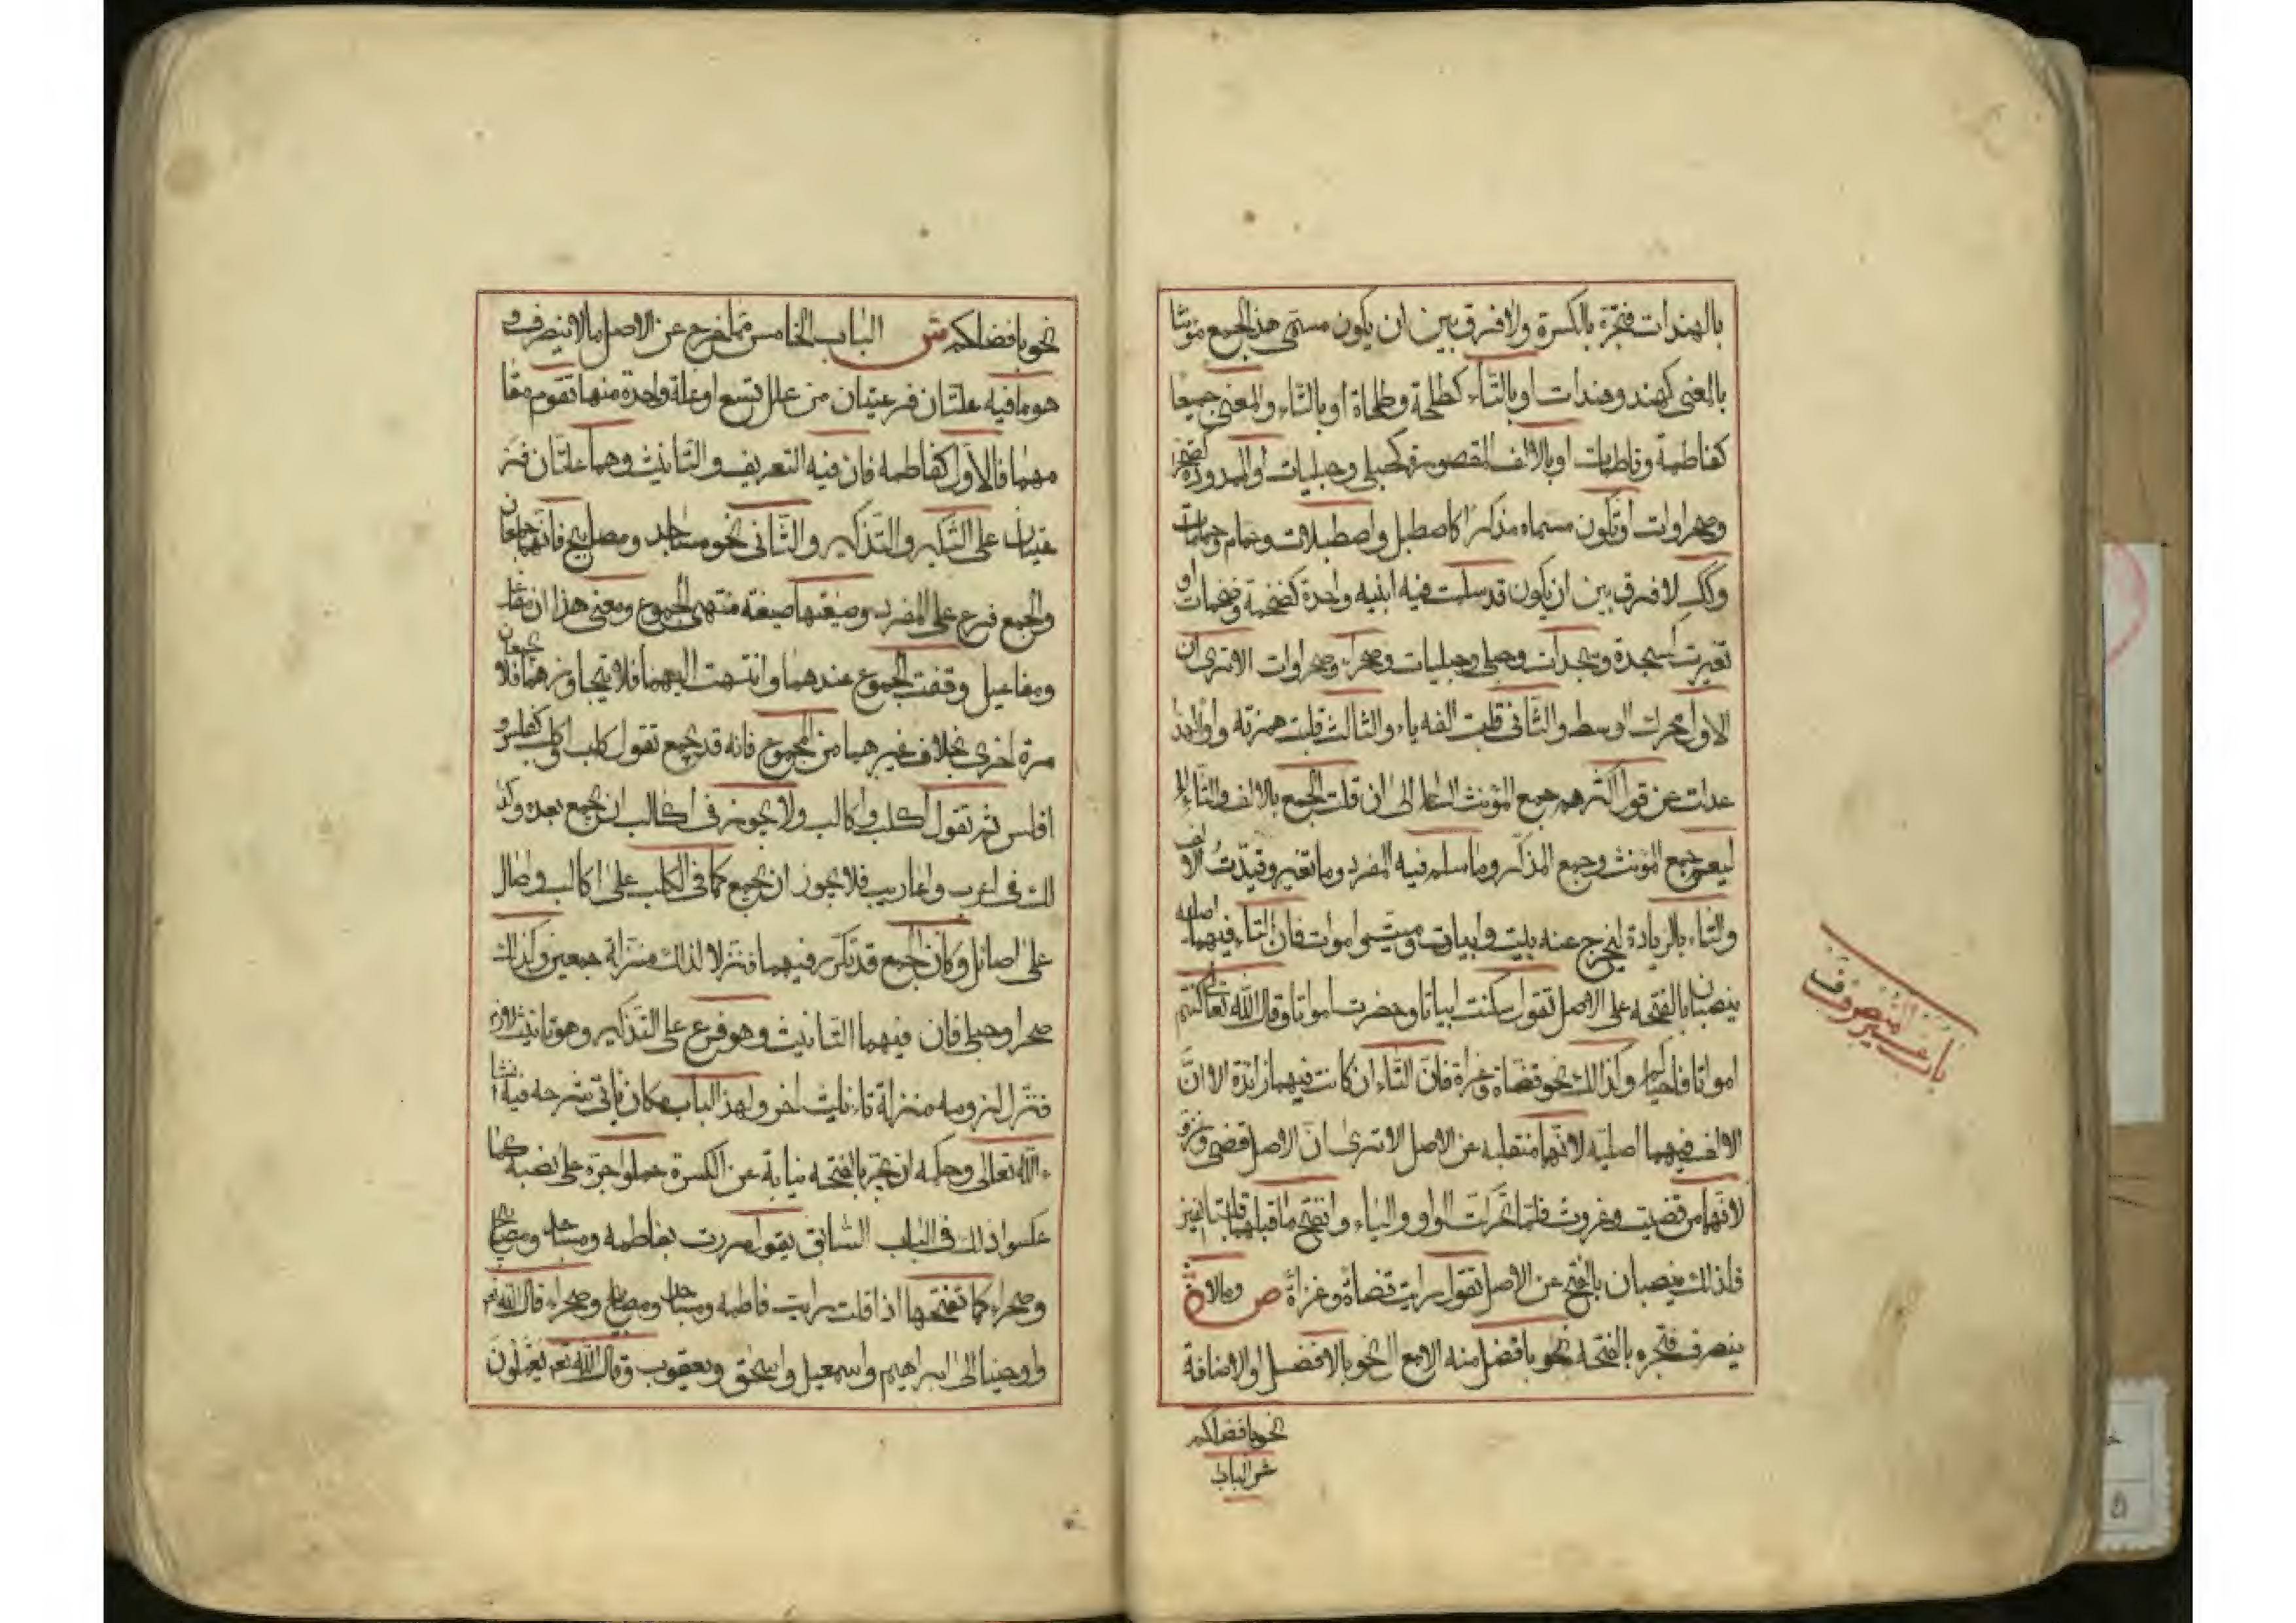 بالهندات فتجره بالكسرة ولا فرق بين ان يكون مسمى هذ الجمع مؤنثا
بالمعنى كهند وهندات او بالتاء كطلحة وطلحاة او بالتاء والمعنى جميعا
كفاطمة وفاطمات او بالالف المقصورة كحبلى وحبليات او الممدودة كصحرا
وصحراوات او يكون مسماه مذكرا كاصطبل واصطبلات وحمام وحمامات
وكك لا فرق بين ان يكون قد سلمت فيه ابنيه واحدة كضخمة وضخمات او
تغيرت كسجدة وسجدات وحبلى وحبليات وصحراء وصحراوات الا ترى ان
الاول محرك الوسط والثانى قلبت الفه ياء والثالث قلبت همزته واوا ولذ
عدلت عن قول اكثرهم جمع المؤنث السالم الى ان قلت الجمع بالالف والتاء
ليعم جمع المؤنث وجمع المذكر وما سلم فيه المفرد وما تغير وقيّدتُ الالف
والتاء بالزيادة ليخرج عنه بيت وابيات وميت واموات فان التاء فيهما اصليه
ينصبان بالفتحه على الاصل تقول سكنت ابياتا وحضرت امواتا وقال الله تعالى كنتم
امواتا فاحياكم وكذالك نحو قضاة وغزاة فان التاء ان كانت فيهما زائدة الا انّ
الالف فيهما اصليه لانهما منقلبه عن الاصل الا ترى ان الاصل قضى وغزو
لانهما من قضيت وغزوت فلما تحركت الواو والياء وانفتح ما قبلهما قلبتا الفين
فلذلك ينصبان بالفتح عن الاصل تقول رايت قضاةً وغزاةً ص وما لا
ينصرف فتجره بالفتحه نحو بافضل منه الا مع ال نحو بالافضل او الاضافة
نحو بافضلكم
ش الباب
باب غير المنصرف
نحو بافضلكم ش الباب الخامس مما خرج عن الاصل ما لا ينصرف و
هو ما فيه علتان فرعيتان من علل تسع او علة واحدة منها تقوم مقا
مهما فالاول كفاطمه فان فيه التعريف والتانيث وهما علتان فر
عيتان على التنكير والتذكير والثانى نحو مساجد ومصابيح فانهما جمعان
والجمع فرع على المفرد وصيغتهما صيغة منتهى الجموع ومعنى هذا ان مفاعل
ومفاعيل وقفت الجموع عندهما وانتهت اليهما فلا يتجاوزهما فلا يجمعان
مرة اخرى بخلاف غيرهما من الجموع فانه قد يجمع تقول كلب اكلب كفلس و
افلس ثم تقول اكلب واكالب ولا يجوز فى اكالب ان يجمع بعده وكذ
لك فى اعرب واعاريب فلا يجوز ان يجمع كما فى اكلب على اكالب واصال
على اصائل وكان الجمع قد تكرر فيهما فنزلا لذلك منزلة جمعين وكذلك
صحرا وحبلى فان فيهما التانيث وهو فرع على التذكير وهو تانيث لازم
فنزل لزومه منزلة تانيث اخر ولهذ الباب مكان ياتى شرحه فيه انشا
ءالله تعالى وحكمه ان يجر بالفتحه نيابة عن الكسرة حملوا جره على نصبه كما
عكسوا ذلك فى الباب السابق يقول مررت بفاطمه ومساجد ومصابيح
وصحراء كما تفتحها اذا قلت رايت فاطمه ومساجد ومصابيح وصحراء قال الله تع
واوحينا الى ابراهيم واسمعيل واسحق ويعقوب وقال الله تع يعملون